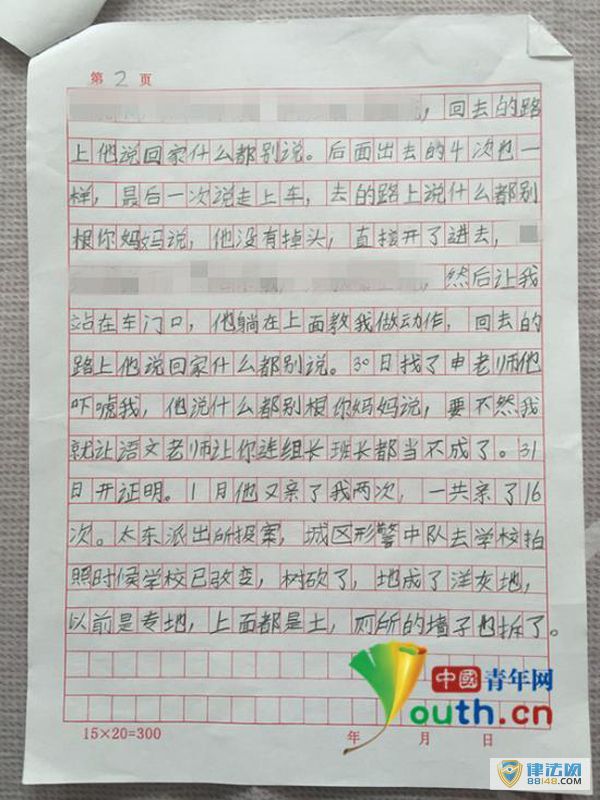 第 2 页
，回去的路
上他说回家什么都别说。后面出去的4次也一
样，最后一次说走上车，去的路上说什么都别
根你妈妈说，他没有掉头，直接开了进去，
，然后让我
站在车门口，他躺在上面教我做动作，回去的
路上他说回家什么都别说。30日找了申老师他
吓唬我，他说什么都别根你妈妈说，要不然我
就让语文老师让你连组长班长都当不成了。31
日开证明。1月他又亲了我两次，一共亲了16
次。太东派出所报案，城区形警中队去学校拍
照时候学校已改变，树砍了，地成了洋灰地，
以前是专地，上面都是土，厕所的墙子也拆了。
中國青年网
Youth.cn
15×20=300 年 月 日
律法网
88148.COM